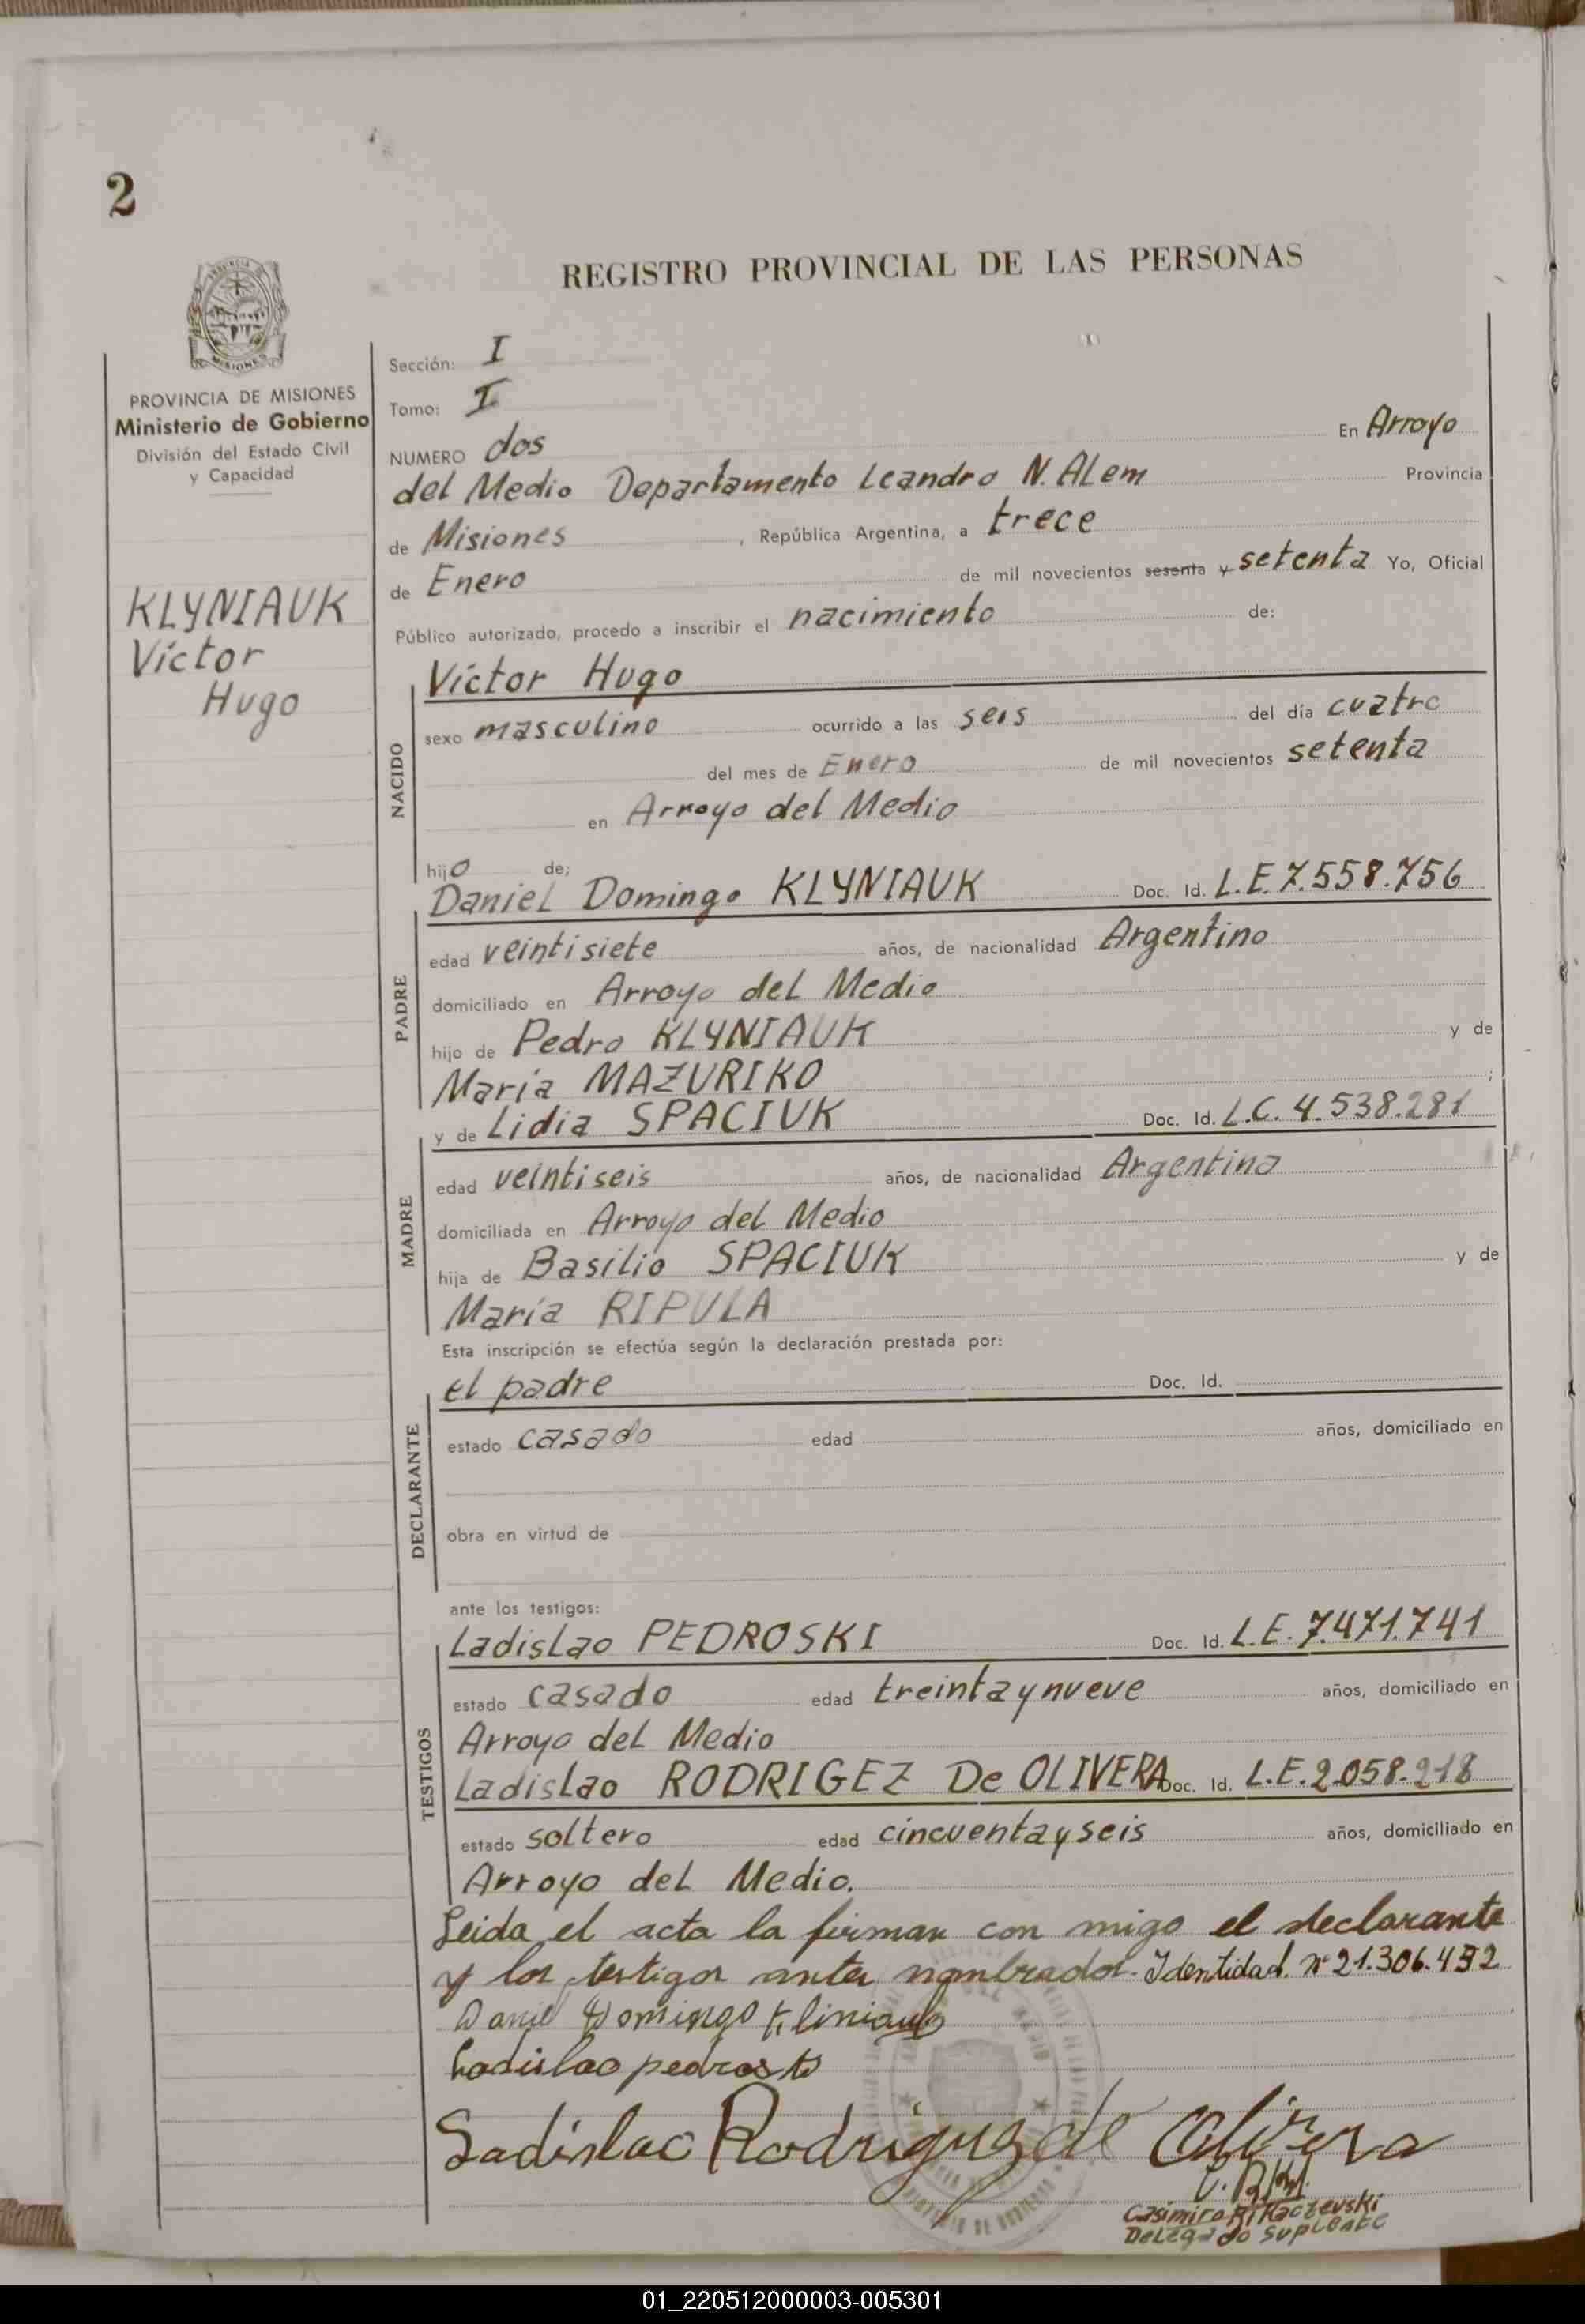 2
REGISTRO PROVINCIAL DE LAS PERSONAS
PROVINCIA DE MISIONES
Ministerio de Gobierno
División del Estado Civil
y Capacidad
KLYNIAUK
Víctor
Hugo
Sección: I
Tomo: I
NUMERO dos En Arroyo
del Medio Departamento Leandro N. ALem Provincia
de Misiones, República Argentina, a trece
de Enero de mil novecientos sesenta y setenta Yo, Oficial
Público autorizado, procedo a inscribir el nacimiento de:
NACIDO
Víctor Hugo
sexo masculino ocurrido a las seis del día cuatro
del mes de Enero de mil novecientos setenta
en Arroyo del Medio
hijo de;
PADRE
Daniel Domingo KLYNIAUK Doc. Id. L.E. 7.558.756
edad veintisiete años, de nacionalidad Argentino
domiciliado en Arroyo del Medio
hijo de Pedro KLYNIAUK y de
María MAZURIKO ;
MADRE
y de Lidia SPACIUK Doc. Id. L.C. 4.538.281
edad veintiseis años, de nacionalidad Argentina
domiciliada en Arroyo del Medio
hija de Basilio SPACIUK y de
María RIPULA
Esta inscripción se efectúa según la declaración prestada por:
DECLARANTE
el padre Doc. Id.
estado casado edad años, domiciliado en
obra en virtud de
ante los testigos:
TESTIGOS
Ladislao PEDROSKI Doc. Id. L.E. 7.471.741
estado casado edad treinta y nueve años, domiciliado en
Arroyo del Medio
Ladislao RODRIGEZ De OLIVERA Doc. Id. L.E. 2.058.218
estado soltero edad cincuenta y seis años, domiciliado en
Arroyo del Medio.
Leida el acta la firman con migo el declarante
y los testigos antes nombrados. Identidad. Nº 21.306.432
Daniel Domingo Kliniauk
Ladislao pedroski
Ladislao Rodriguez de Olivera
Casimiro Ritkaczevski
Delegado Suplente
01_220512000003-005301